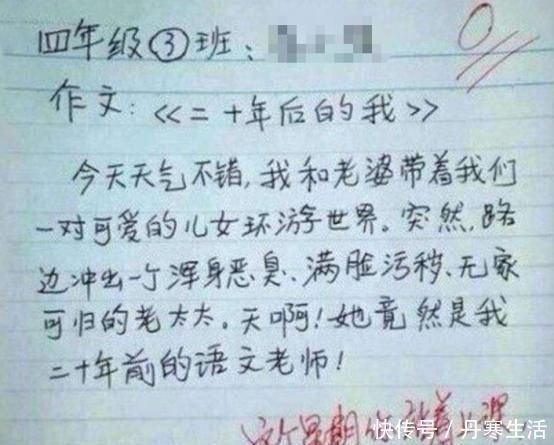 四年级③班:
0
作文:《二十年后的我》
今天天气不错,我和老婆带着我们
一对可爱的儿女环游世界。突然,路
边冲出一个浑身恶臭、满脸污秽、无家
可归的老太太。天啊!她竟然是我
二十年前的语文老师!
这个星期你站着上课
快传号/丹寒生活